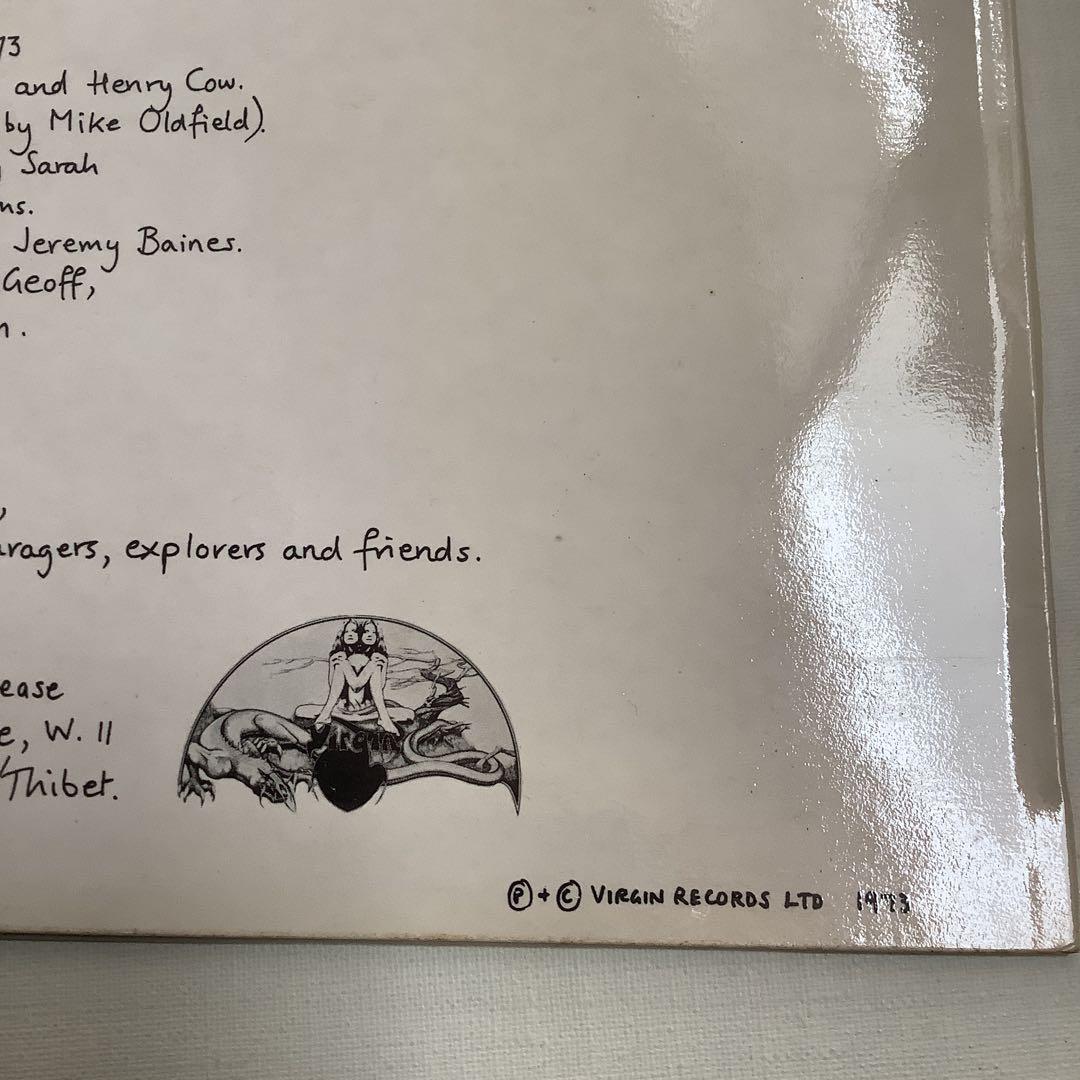 73
and Henry Cow.
by Mike Oldfield).
Sarah
ns.
Jeremy Baines.
Geoff,
n.
,
ragers, explorers and friends.
ease
e, W. 11
Thibet.
VIRGIN
Ⓟ + © VIRGIN RECORDS LTD 1973